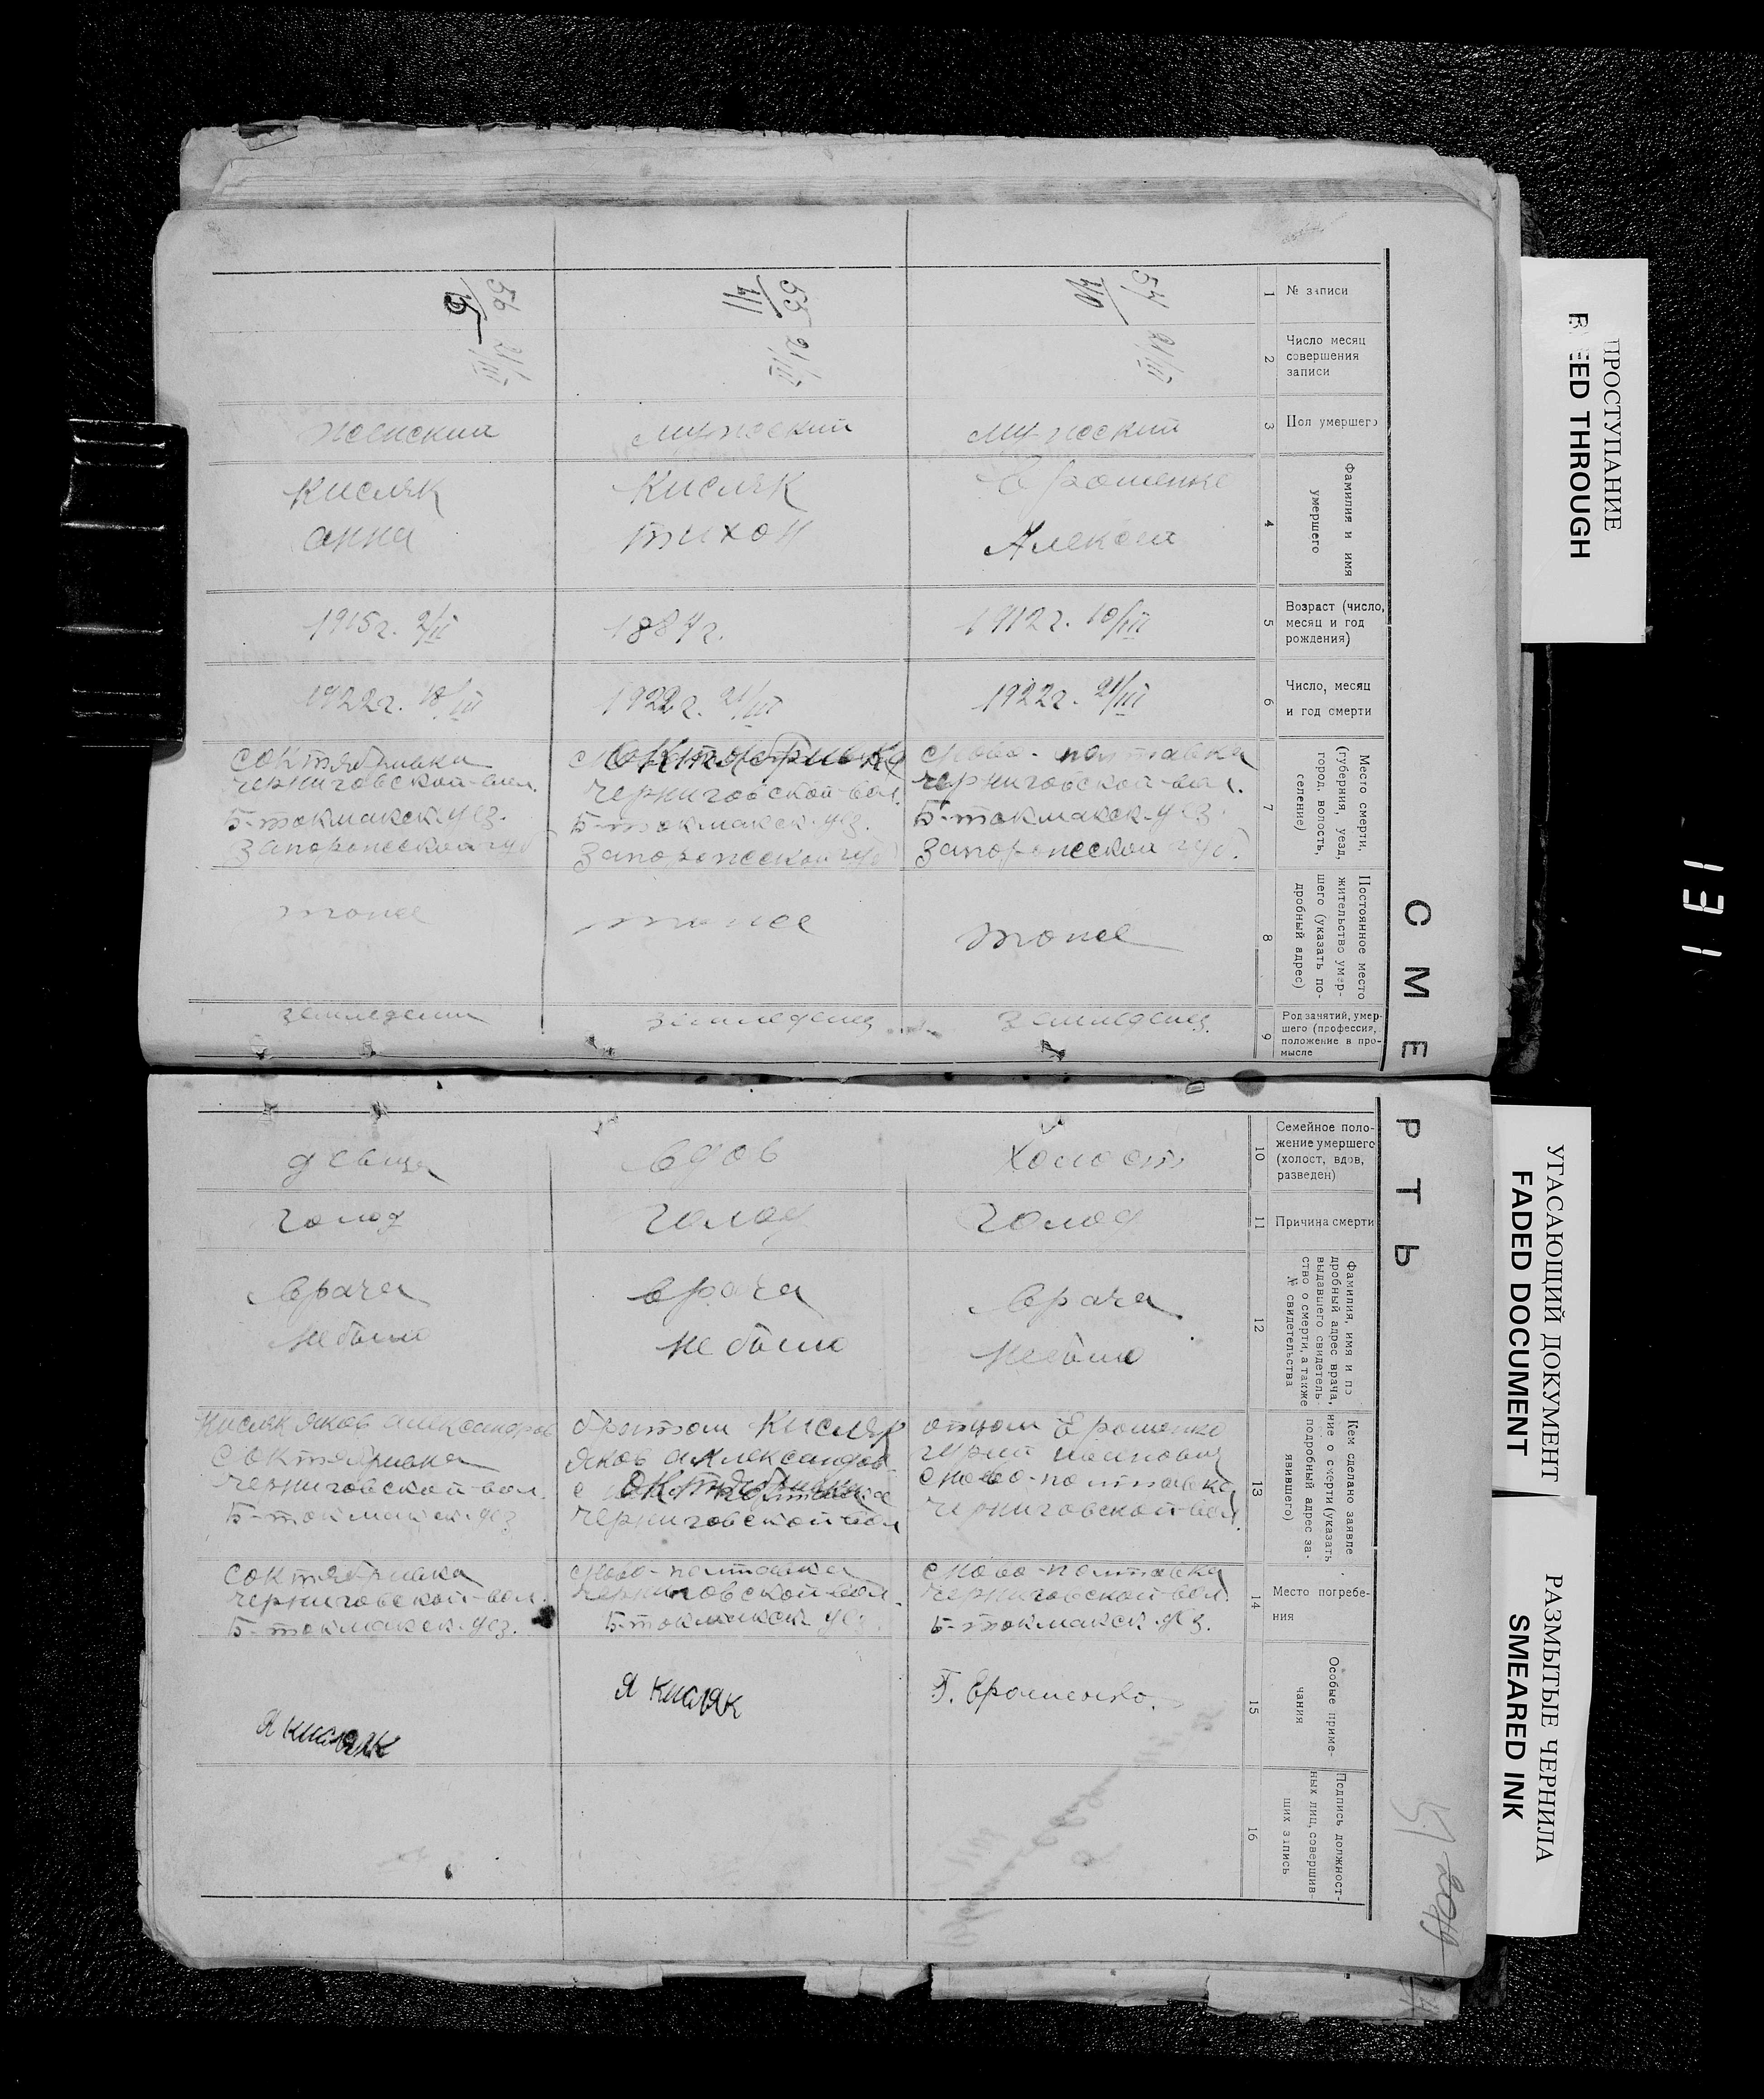 СМЕРТЬ
№ записи
1
54
10
Число месяц
совершения
записи
2
21/III
Пол умершего
3
мужской
Фамилия и имя
умершего
4
Ерошенко
Алексей
Возраст (число,
месяц и год
рождения)
5
1912 г. 10/III
Число, месяц
и год смерти
6
1922 г. 21/III
Место смерти,
(губерния, уезд,
город, волость,
селение)
7
с ново-полтавка
черниговской-вол.
Б-токмакск. уез.
Запорожской губ.
Постоянное место
жительство умер-
шего (указать по-
дробный адрес)
8
тоже
Род занятий, умер-
шего (профессия,
положение в про-
мысле
9
земледелец
Семейное поло-
жение умершего
(холост, вдов,
разведен)
10
Холост
Причина смерти
11
голод
Фамилия, имя и по
дробный адрес врача,
выдавшего свидетель-
ство о смерти, а также
№ свидетельства
12
врача
не было
Кем сделано заявле
ние о смерти (указать
подробный адрес за-
явившего)
13
отцом Ерошенко
с ново-полтавка
черниговской-вол.
Место погребе-
ния
14
с ново-полтавка
черниговской-вол.
Б-токмакск. уез.
Особые приме-
чания
15
Г. Ерошенко.
Подпись должност-
ных лиц, совершив-
ших запись
16
55
11
21/III
мужской
Кисляк
тихон
1884 г.
1922 г. 21/III
с октябрька
черниговской-вол.
Б-токмакск. уез.
Запорожской губ
тоже
земледелец
вдов
голод
врача
не было
братом Кисляк
Яков Александров
с октябрька
черниговской вол
с ново-полтавка
черниговской-вол.
Б-токмакск. уез.
Я Кисляк
56
5
21/III
женский
Кисляк
анна
1915 г. 2/II
1922 г. 18/III
с октябривка
черниговской-вол.
Б-токмакск. уез.
Запорожской губ
тоже
девица
голод
врача
не было
Кисляк Яков Александров
с октябривка
черниговской-вол.
Б-токмакск. уез
с октябривка
черниговской-вол.
Б-токмакск. уез.
Я Кисляк
ПРОСТУПАНИЕ
EED THROUGH
УГАСАЮЩИЙ ДОКУМЕНТ
FADED DOCUMENT
РАЗМЫТЫЕ ЧЕРНИЛА
SMEARED INK
131